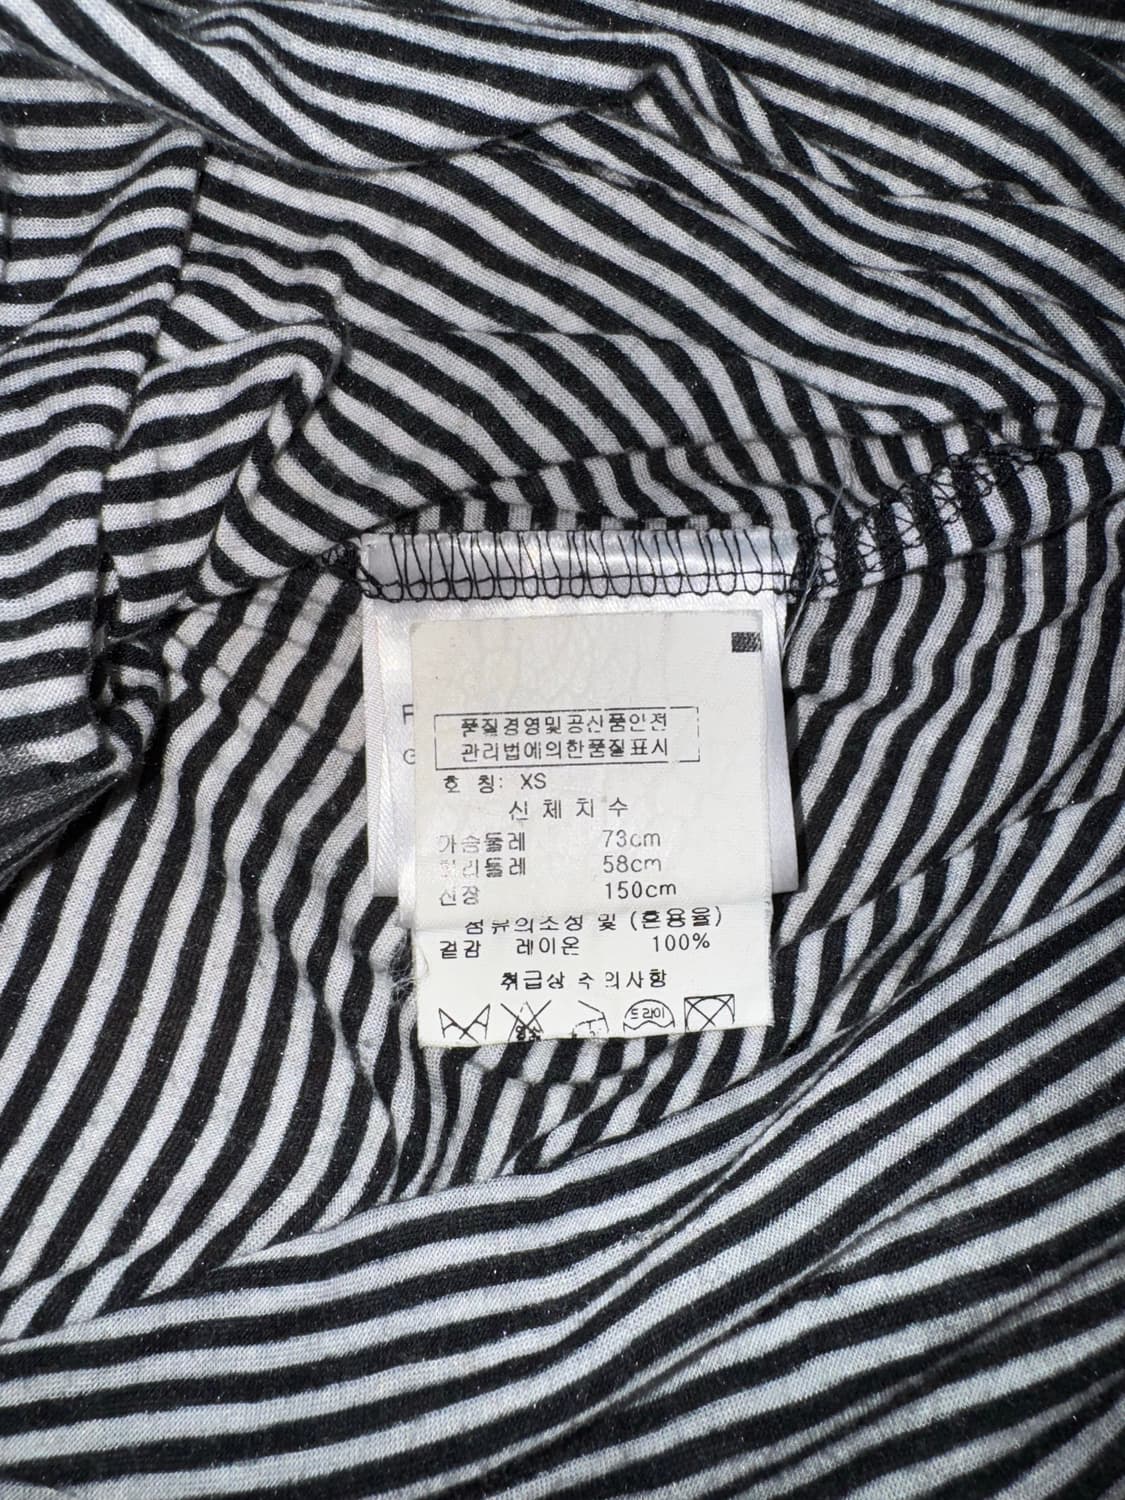 품질경영및공산품안전
관리법에의한품질표시
호 칭: XS
신 체 치 수
가슴둘레 73cm
허리둘레 58cm
신장 150cm
섬유의조성 및 (혼용율)
겉감 레이온 100%
취급상 주의사항
드라이